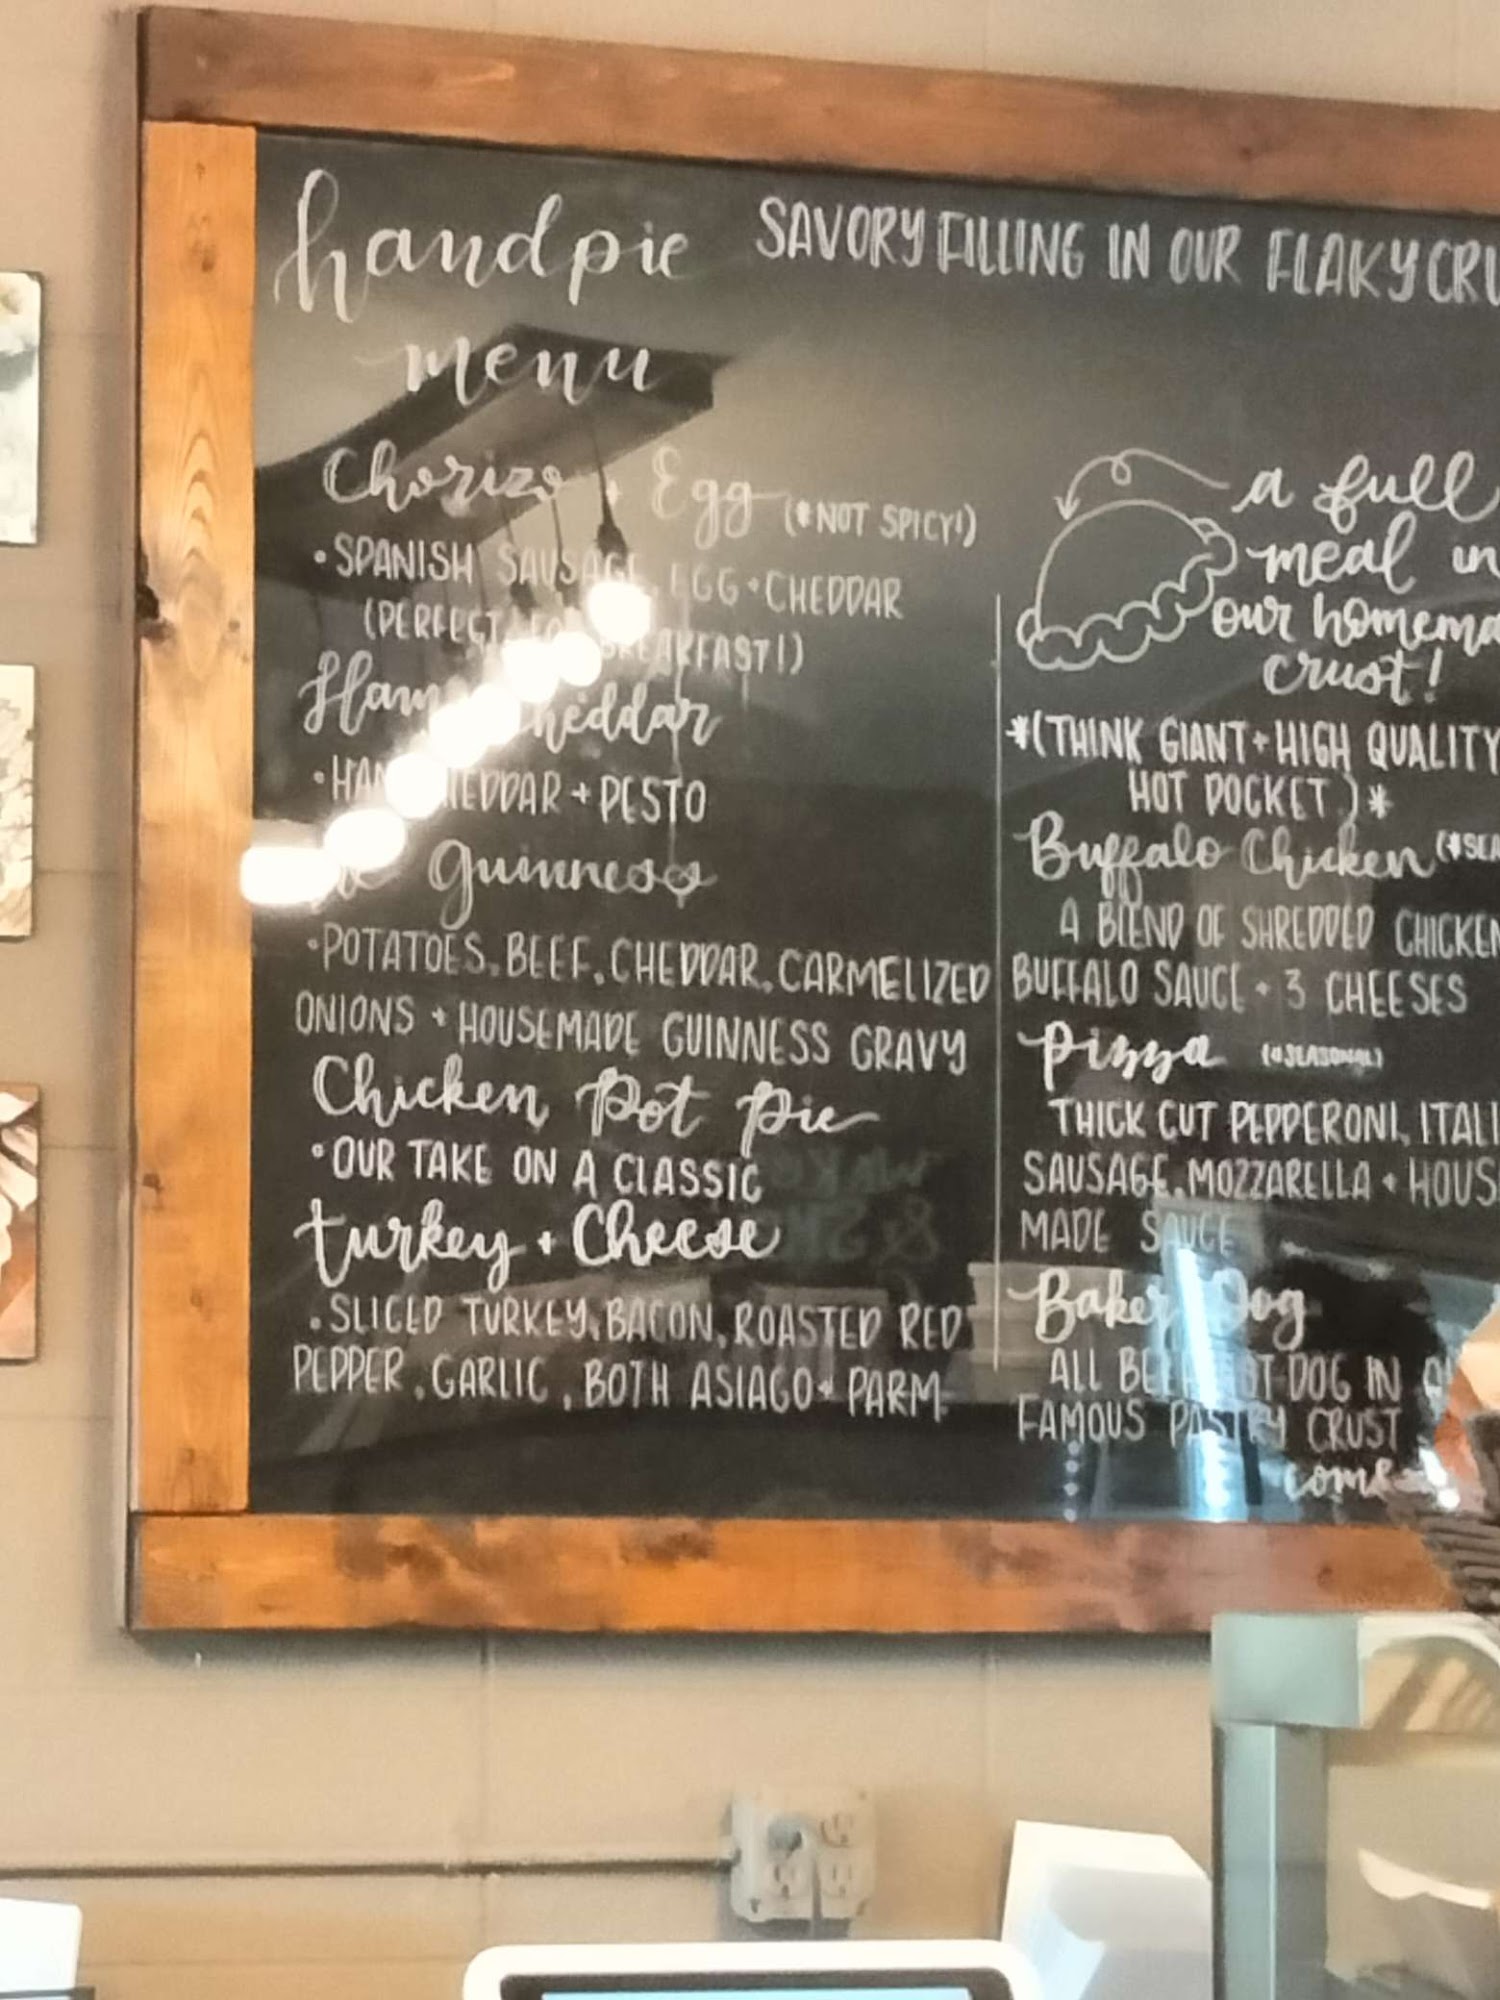 handpie
menu
SAVORY FILLING IN OUR FLAKY
Chorizo + Egg (*NOT SPICY!)
•SPANISH SAUSAGE, EGG + CHEDDAR
(PERFECT FOR BREAKFAST!)
Ham Cheddar
•HAM CHEDDAR + PESTO
Guinness
•POTATOES, BEEF, CHEDDAR, CARMELIZED
ONIONS + HOUSEMADE GUINNESS GRAVY
Chicken Pot Pie
•OUR TAKE ON A CLASSIC
Turkey + Cheese
•SLICED TURKEY, BACON, ROASTED RED
PEPPER, GARLIC, BOTH ASIAGO + PARM
a full
meal in
our
crust!
*(THINK GIANT + HIGH QUALITY
HOT POCKET)*
Buffalo Chicken
A BLEND OF SHREDDED CHICKEN
BUFFALO SAUCE + 3 CHEESES
Pizza (*SEASONAL)
THICK CUT PEPPERONI,
SAUSAGE, MOZZARELLA +
MADE SAUCE
Baker Dog
ALL BEEF HOT DOG IN
FAMOUS PASTRY CRUST